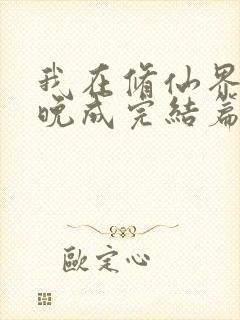 我在修仙界
晚成完结篇
歐定心